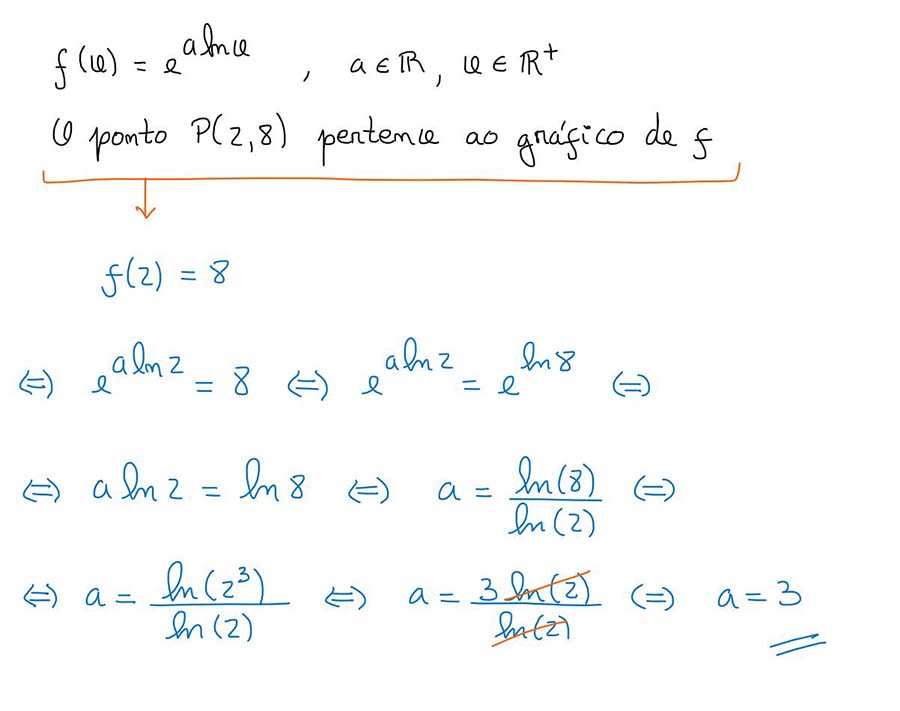 f(x) = e^{a ln x} , a ∈ ℝ, x ∈ ℝ⁺
O ponto P(2,8) pertence ao gráfico de f
f(2) = 8
⇔ e^{a ln 2} = 8 ⇔ e^{a ln 2} = e^{ln 8} ⇔
⇔ a ln 2 = ln 8 ⇔ a = ln(8)/ln(2) ⇔
⇔ a = ln(2³)/ln(2) ⇔ a = 3 ln(2)/ln(2) ⇔ a = 3